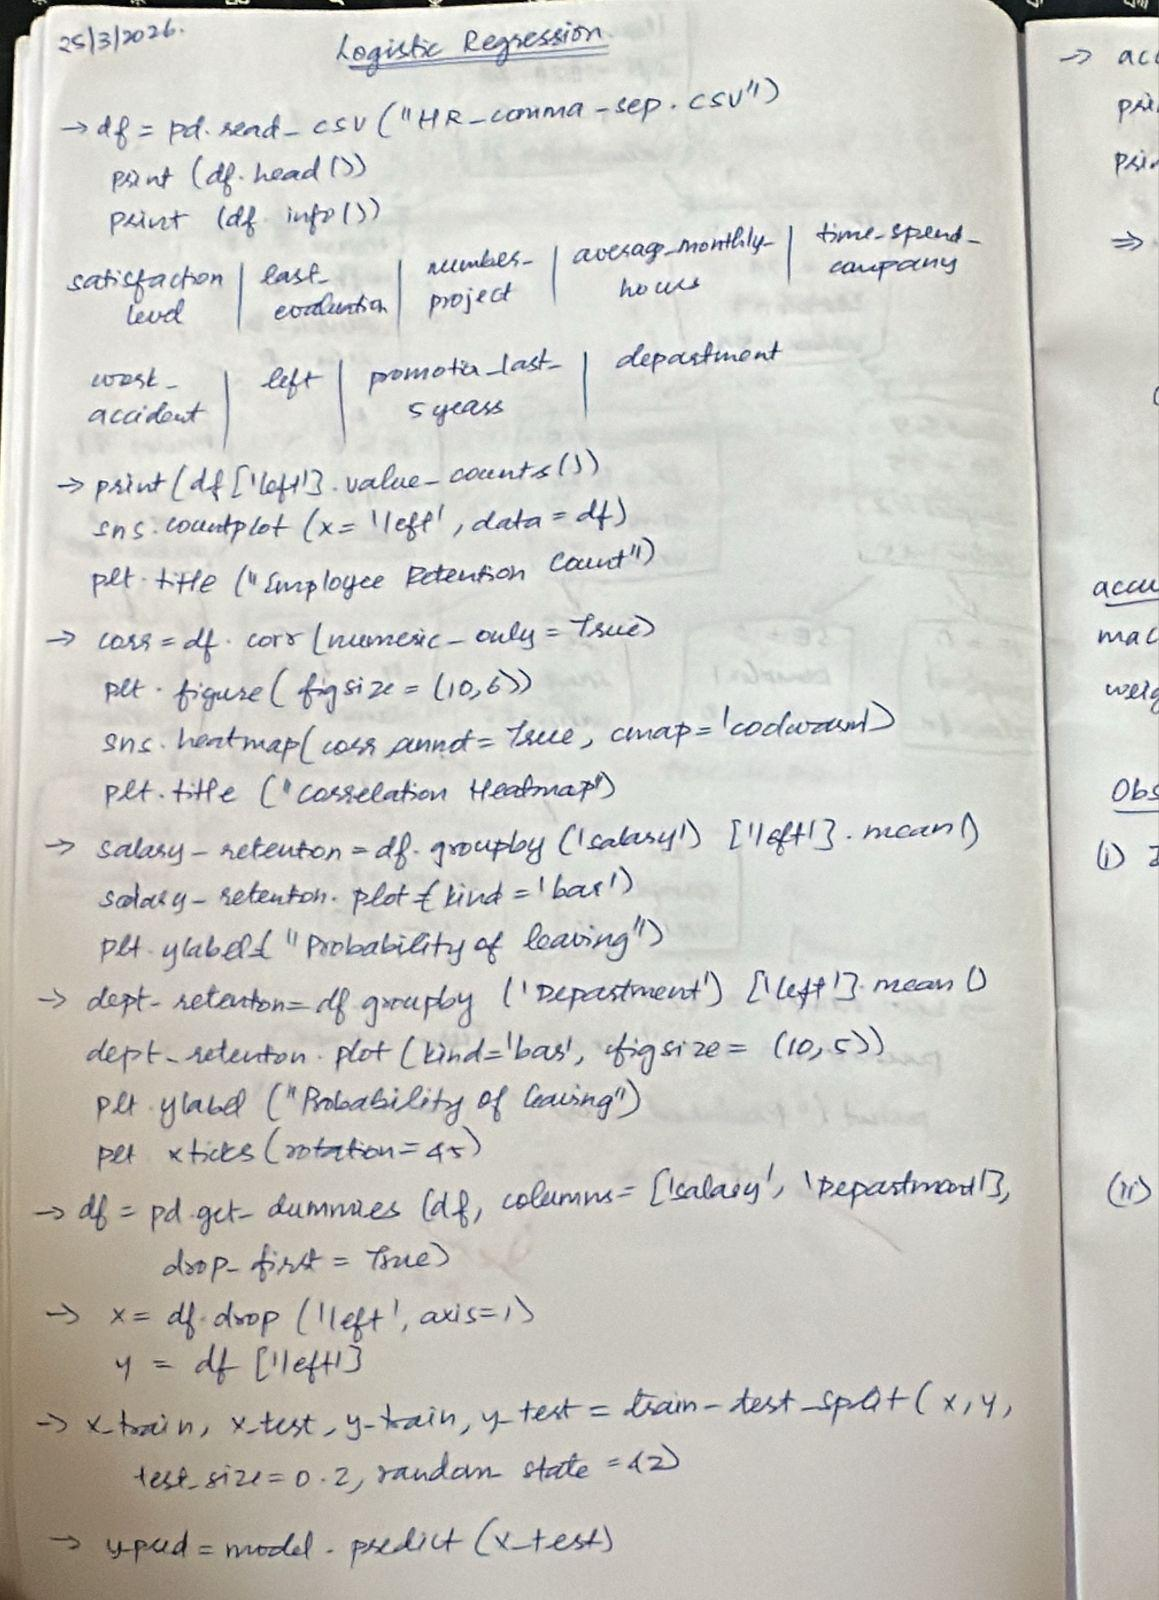 25/3/2026.
Logistic Regression
→ df = pd.read_csv ("HR_comma_sep.csv")
print (df.head())
print (df.info())
satisfaction | last_ | number_ | average_monthly_ | time_spend_
level | evaluation | project | hours | company
work_ | left | promotion_last_ | department
accident | 5 years
→ print (df['left'].value_counts())
sns.countplot (x='left', data = df)
plt.title ("Employee Retention Count")
→ corr = df.corr (numeric_only = True)
plt.figure (figsize = (10,6))
sns.heatmap (corr annot = True, cmap = 'coolwarm')
plt.title ("Correlation Heatmap")
→ salary_retention = df.groupby ('salary') ['left'].mean()
salary_retention.plot (kind = 'bar')
plt.ylabel ("Probability of leaving")
→ dept_retention = df groupby ('Department') ['left'].mean()
dept_retention.plot (kind='bar', figsize = (10,5))
plt.ylabel ("Probability of leaving")
plt xticks (rotation = 45)
→ df = pd.get_dummies (df, columns = ['salary', 'Department'],
drop_first = True)
→ x = df.drop ('left', axis=1)
y = df ['left']
→ x_train, x_test, y_train, y_test = train_test_split (x, y,
test_size = 0.2, random state = 42)
→ y_pred = model.predict (x_test)
→ acc
⇒
mac
weig
Obs
(i)
(ii)